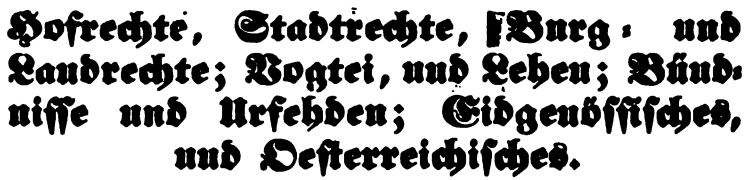 Hofrechte, Stadtrechte, Burg - und
Landrechte; Vogtei, und Lehen; Bünd-
nisse und Urfehden; Eidgenössisches,
und Oesterreichisches.